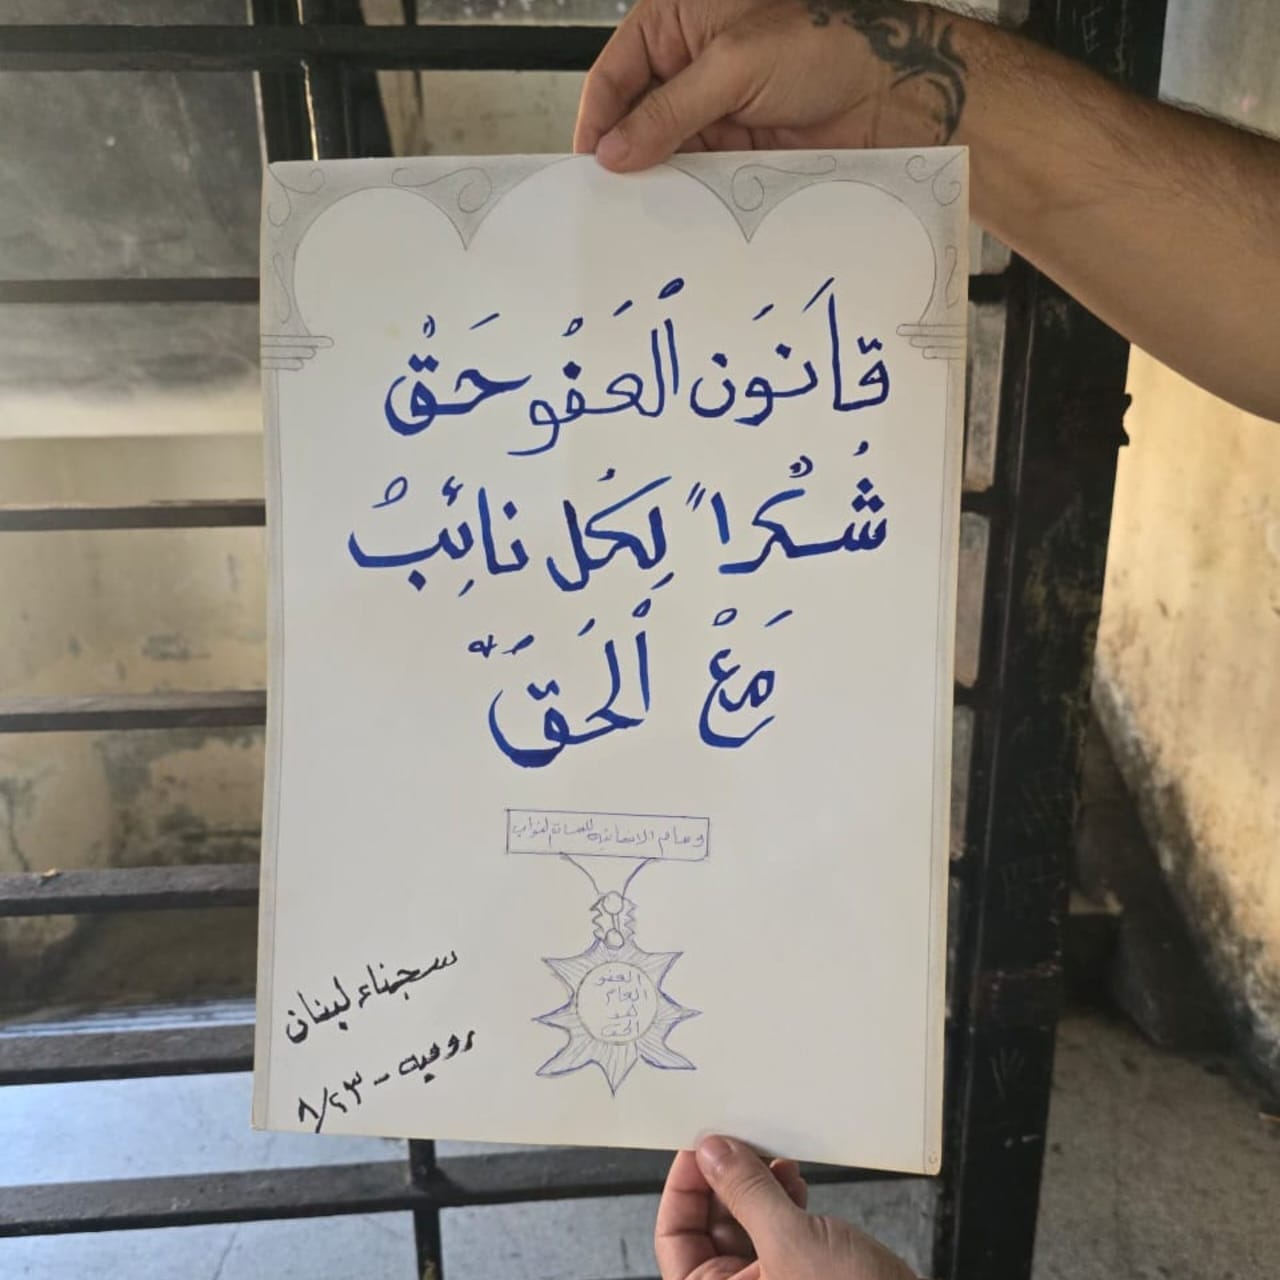 قَانَوَن الْعَفْو حَقْ
شُكْراً لِكُل نائِبْ
مَعْ الْحَقّ
وسام الانسانية للسادة النواب
العفو
العام
هو
الحق
سجناء لبنان
رومية - ٨/٢٣